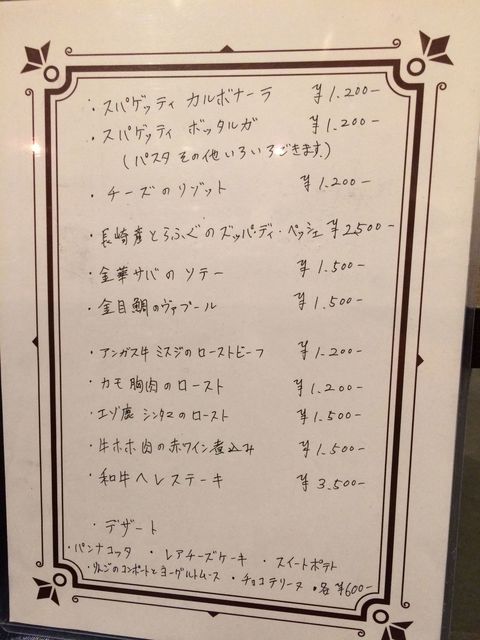 ・スパゲッティ カルボナーラ ¥1.200-
・スパゲッティ ボッタルガ ¥1.200-
(パスタその他いろいろできます)
・チーズのリゾット ¥1.200-
・長崎産とらふぐのズッパ・ディ・ペッシェ ¥2.500-
・金華サバのソテー ¥1.500-
・金目鯛のヴァプール ¥1.500-
・アンガス牛ミスジのローストビーフ ¥1.200-
・カモ胸肉のロースト ¥1.200-
・エゾ鹿シンタマのロースト ¥1.500-
・牛ホホ肉の赤ワイン煮込み ¥1.500-
・和牛ヘレステーキ ¥3.500-
・デザート
・パンナコッタ ・レアチーズケーキ ・スイートポテト
・りんごのコンポートとヨーグルトムース ・チョコテリーヌ ・各¥600-